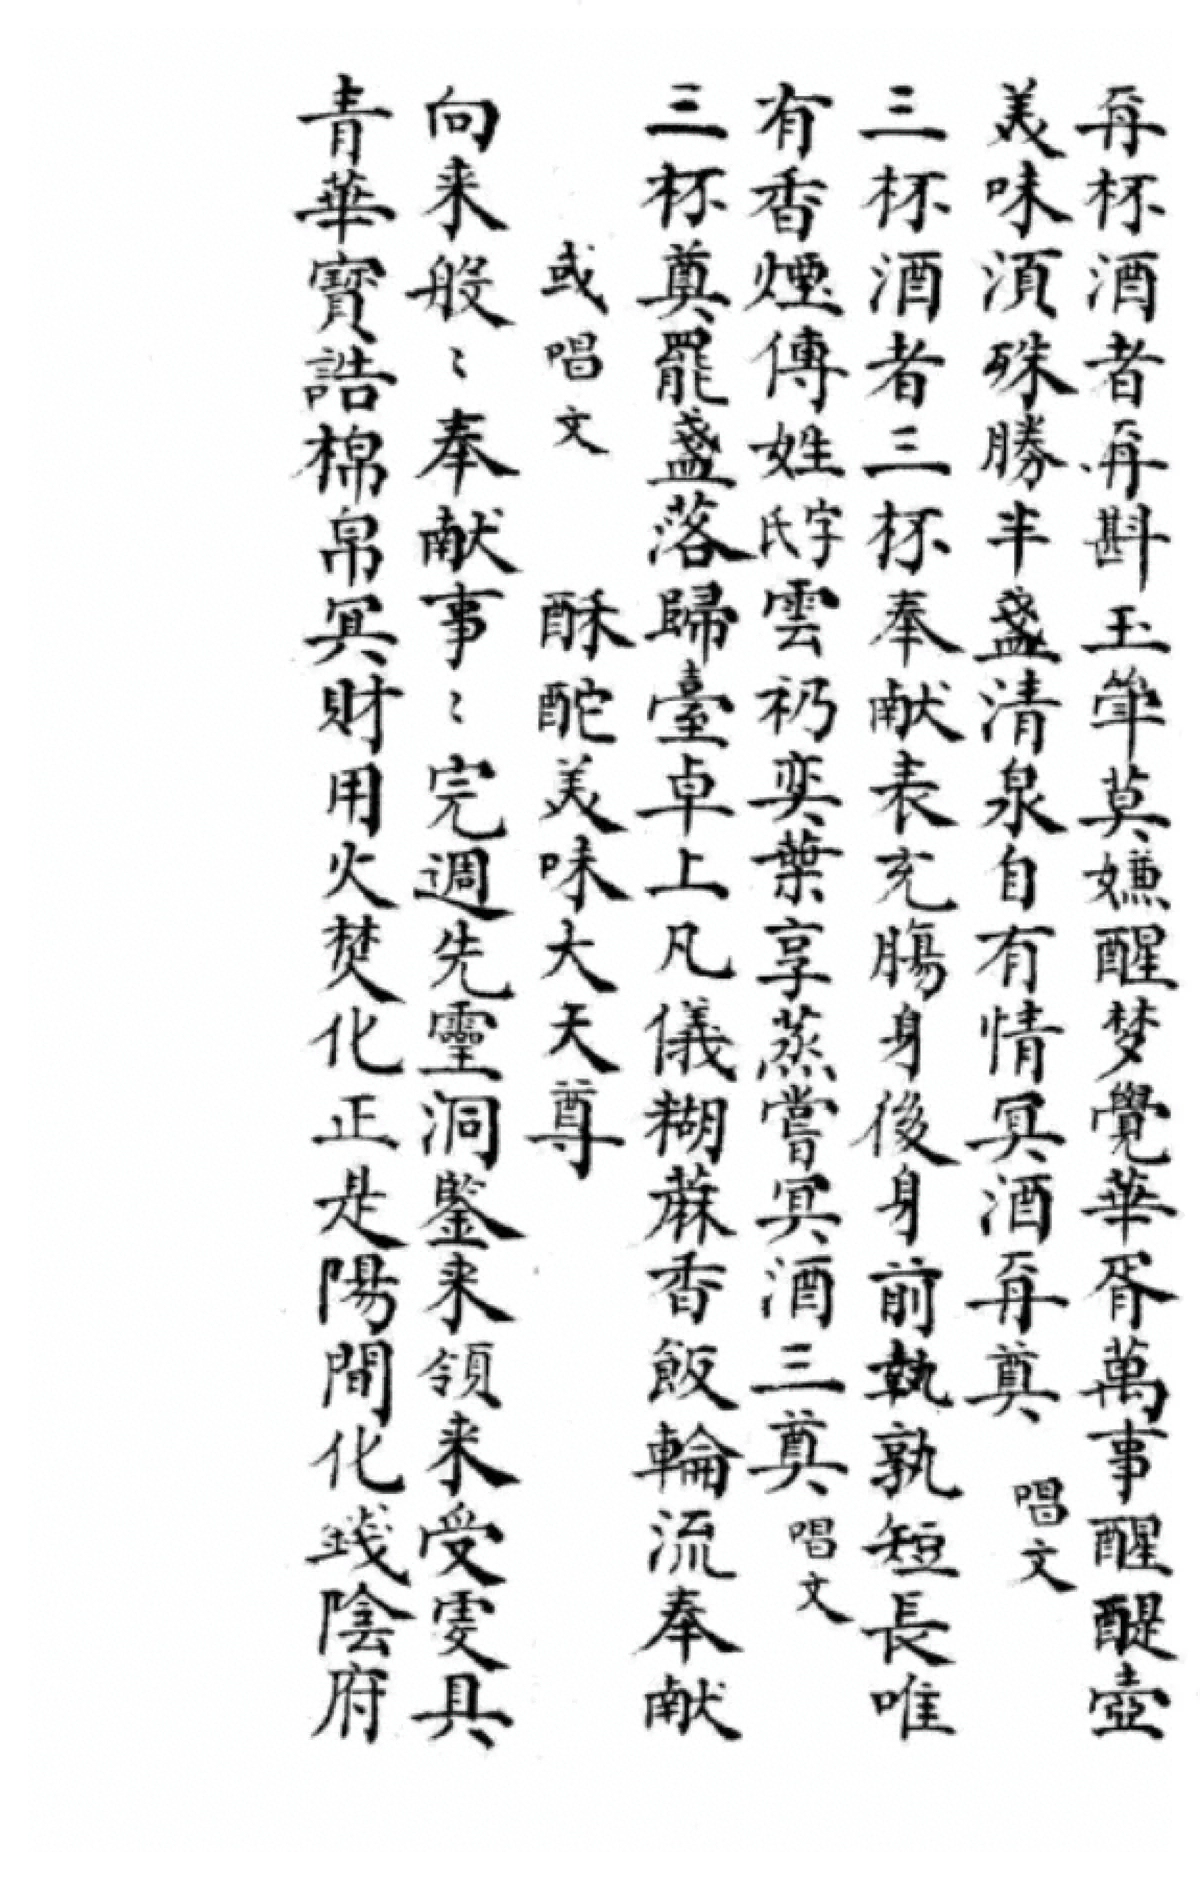 再杯酒者再斟玉斝莫嫌醒梦覺華胥萬事醒醍壺
美味湏殊勝半盞清泉自有情冥酒再奠 唱文
三杯酒者三杯奉献表充腸身後身前執孰短長唯
有香煙傳姓氏字雲礽奕葉享蒸嘗冥酒三奠 唱文
三杯奠罷盞落歸臺卓上凡儀糊蔴香飯輪流奉献
或唱文 酥酡美味大天尊
向来般〻奉献事〻完週先靈洞鑒来領来受雯具
青華寳誥棉帛冥財用火焚化正是陽間化錢陰府